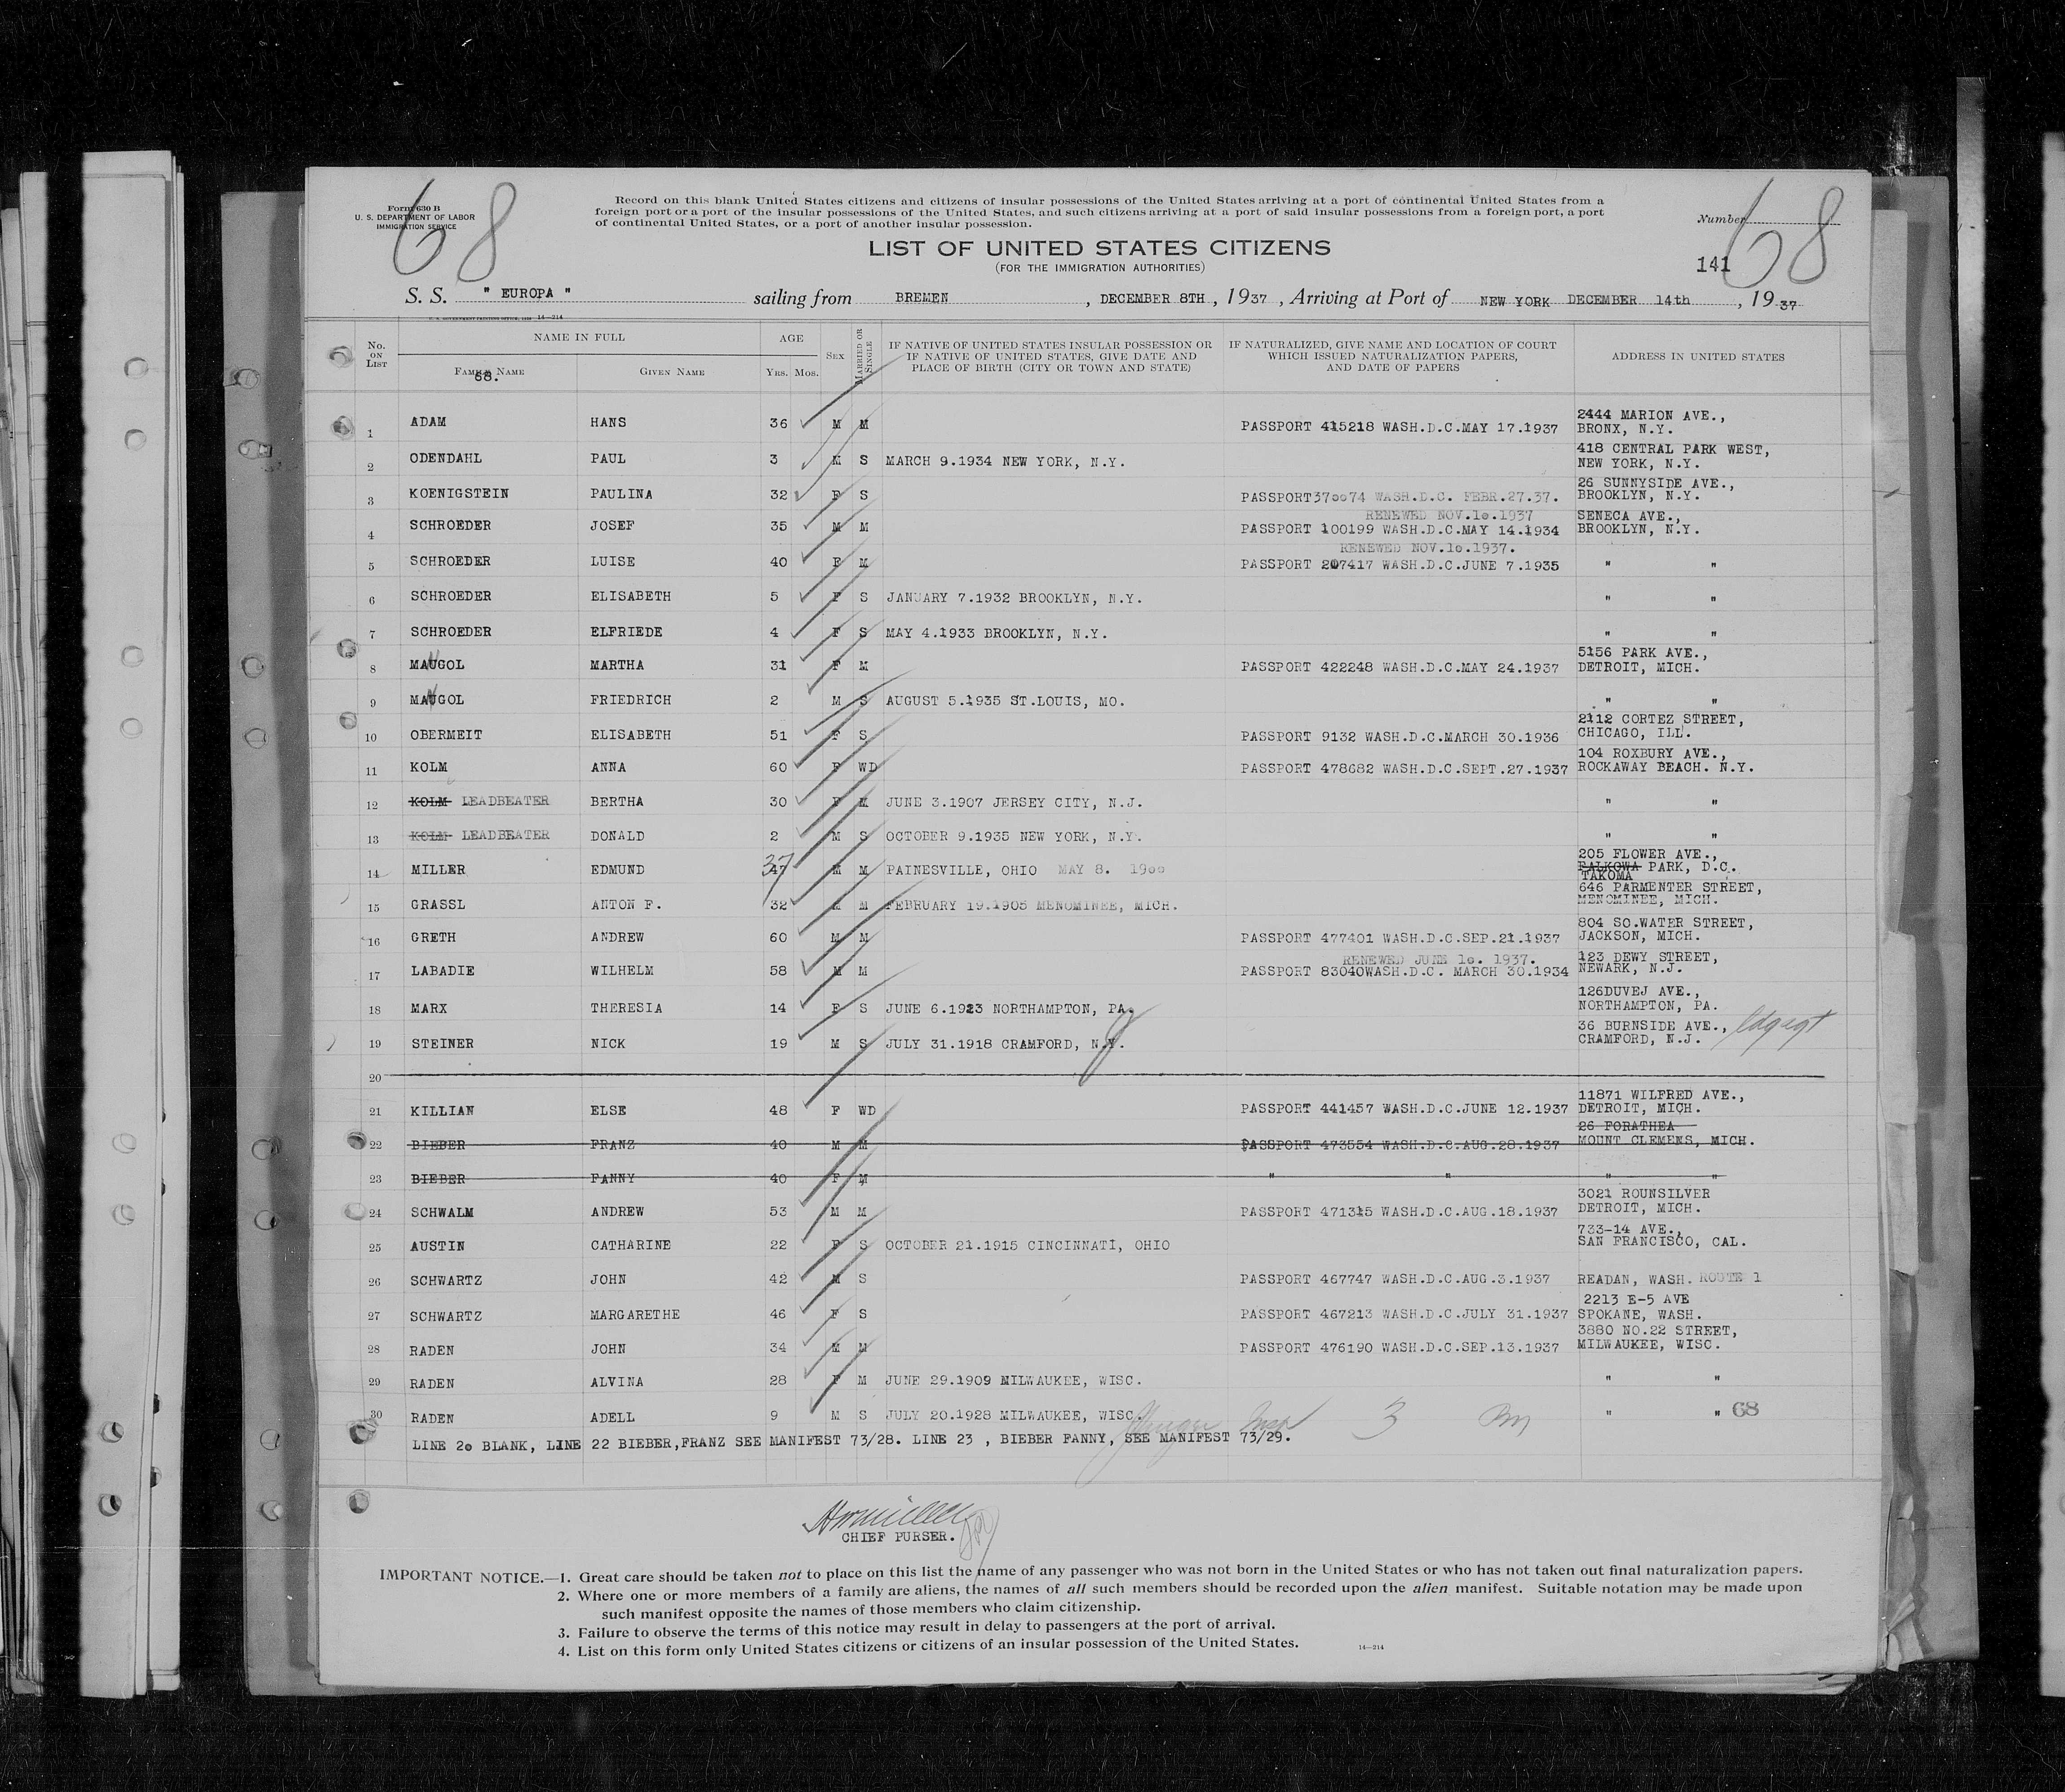 68
Form 630 B
U. S. DEPARTMENT OF LABOR
IMMIGRATION SERVICE
Record on this blank United States citizens and citizens of insular possessions of the United States arriving at a port of continental United States from a
foreign port or a port of the insular possessions of the United States, and such citizens arriving at a port of said insular possessions from a foreign port, a port
of continental United States, or a port of another insular possession.
Number
68
LIST OF UNITED STATES CITIZENS
(FOR THE IMMIGRATION AUTHORITIES)
141
S. S. " EUROPA " sailing from BREMEN , DECEMBER 8TH , 1937 , Arriving at Port of NEW YORK DECEMBER 14th , 19 37
14—214
No. ON LIST NAME IN FULL AGE SEX MARRIED OR SINGLE IF NATIVE OF UNITED STATES INSULAR POSSESSION OR IF NATIVE OF UNITED STATES, GIVE DATE AND PLACE OF BIRTH (CITY OR TOWN AND STATE) IF NATURALIZED, GIVE NAME AND LOCATION OF COURT WHICH ISSUED NATURALIZATION PAPERS, AND DATE OF PAPERS ADDRESS IN UNITED STATES
FAMILY NAME GIVEN NAME YRS. MOS.
68.
1 ADAM HANS 36 M M PASSPORT 415218 WASH.D.C.MAY 17.1937 2444 MARION AVE., BRONX, N.Y.
2 ODENDAHL PAUL 3 M S MARCH 9.1934 NEW YORK, N.Y. 418 CENTRAL PARK WEST, NEW YORK, N.Y.
3 KOENIGSTEIN PAULINA 32 F S PASSPORT370074 WASH.D.C. FEBR.27.37. 26 SUNNYSIDE AVE., BROOKLYN, N.Y.
4 SCHROEDER JOSEF 35 M M RENEWED NOV.10.1937 PASSPORT 100199 WASH.D.C.MAY 14.1934 SENECA AVE., BROOKLYN, N.Y.
5 SCHROEDER LUISE 40 F M RENEWED NOV.10.1937. PASSPORT 207417 WASH.D.C.JUNE 7.1935 " "
6 SCHROEDER ELISABETH 5 F S JANUARY 7.1932 BROOKLYN, N.Y. " "
7 SCHROEDER ELFRIEDE 4 F S MAY 4.1933 BROOKLYN, N.Y. " "
8 MANGOL MARTHA 31 F M PASSPORT 422248 WASH.D.C.MAY 24.1937 5156 PARK AVE., DETROIT, MICH.
9 MANGOL FRIEDRICH 2 M S AUGUST 5.1935 ST.LOUIS, MO. " "
10 OBERMEIT ELISABETH 51 F S PASSPORT 9132 WASH.D.C.MARCH 30.1936 2112 CORTEZ STREET, CHICAGO, ILL.
11 KOLM ANNA 60 F WD PASSPORT 478682 WASH.D.C.SEPT.27.1937 104 ROXBURY AVE., ROCKAWAY BEACH. N.Y.
12 KOLM LEADBEATER BERTHA 30 F M JUNE 3.1907 JERSEY CITY, N.J. " "
13 KOLM LEADBEATER DONALD 2 M S OCTOBER 9.1935 NEW YORK, N.Y. " "
14 MILLER EDMUND 37 47 M M PAINESVILLE, OHIO MAY 8. 1900 205 FLOWER AVE., BALKOWA PARK, D.C. TAKOMA
15 GRASSL ANTON F. 32 M M FEBRUARY 19.1905 MENOMINEE, MICH. 646 PARMENTER STREET, MENOMINEE, MICH.
16 GRETH ANDREW 60 M M PASSPORT 477401 WASH.D.C.SEP.21.1937 804 SO.WATER STREET, JACKSON, MICH.
17 LABADIE WILHELM 58 M M RENEWED JUNE 10. 1937. PASSPORT 83040WASH.D.C. MARCH 30.1934 123 DEWY STREET, NEWARK, N.J.
18 MARX THERESIA 14 F S JUNE 6.1923 NORTHAMPTON, PA. 126DUVEJ AVE., NORTHAMPTON, PA.
19 STEINER NICK 19 M S JULY 31.1918 CRAMFORD, N.J. 36 BURNSIDE AVE., CRAMFORD, N.J.
20
21 KILLIAN ELSE 48 F WD PASSPORT 441457 WASH.D.C.JUNE 12.1937 11871 WILFRED AVE., DETROIT, MICH.
22 BIEBER FRANZ 40 M M PASSPORT 473554 WASH.D.C.AUG.28.1937 26 FORATHEA MOUNT CLEMENS, MICH.
23 BIEBER FANNY 40 F M " " " "
24 SCHWALM ANDREW 53 M M PASSPORT 471315 WASH.D.C.AUG.18.1937 3021 ROUNSILVER DETROIT, MICH.
25 AUSTIN CATHARINE 22 F S OCTOBER 21.1915 CINCINNATI, OHIO 733-14 AVE., SAN FRANCISCO, CAL.
26 SCHWARTZ JOHN 42 M S PASSPORT 467747 WASH.D.C.AUG.3.1937 READAN, WASH. ROUTE 1
27 SCHWARTZ MARGARETHE 46 F S PASSPORT 467213 WASH.D.C.JULY 31.1937 2213 E-5 AVE SPOKANE, WASH.
28 RADEN JOHN 34 M M PASSPORT 476190 WASH.D.C.SEP.13.1937 3880 NO.22 STREET, MILWAUKEE, WISC.
29 RADEN ALVINA 28 F M JUNE 29.1909 MILWAUKEE, WISC. " "
30 RADEN ADELL 9 M S JULY 20.1928 MILWAUKEE, WISC. 3 " " 68
LINE 20 BLANK, LINE 22 BIEBER,FRANZ SEE MANIFEST 73/28. LINE 23 , BIEBER FANNY, SEE MANIFEST 73/29.
CHIEF PURSER.
IMPORTANT NOTICE.—1. Great care should be taken not to place on this list the name of any passenger who was not born in the United States or who has not taken out final naturalization papers.
2. Where one or more members of a family are aliens, the names of all such members should be recorded upon the alien manifest. Suitable notation may be made upon
such manifest opposite the names of those members who claim citizenship.
3. Failure to observe the terms of this notice may result in delay to passengers at the port of arrival.
4. List on this form only United States citizens or citizens of an insular possession of the United States.
14—214